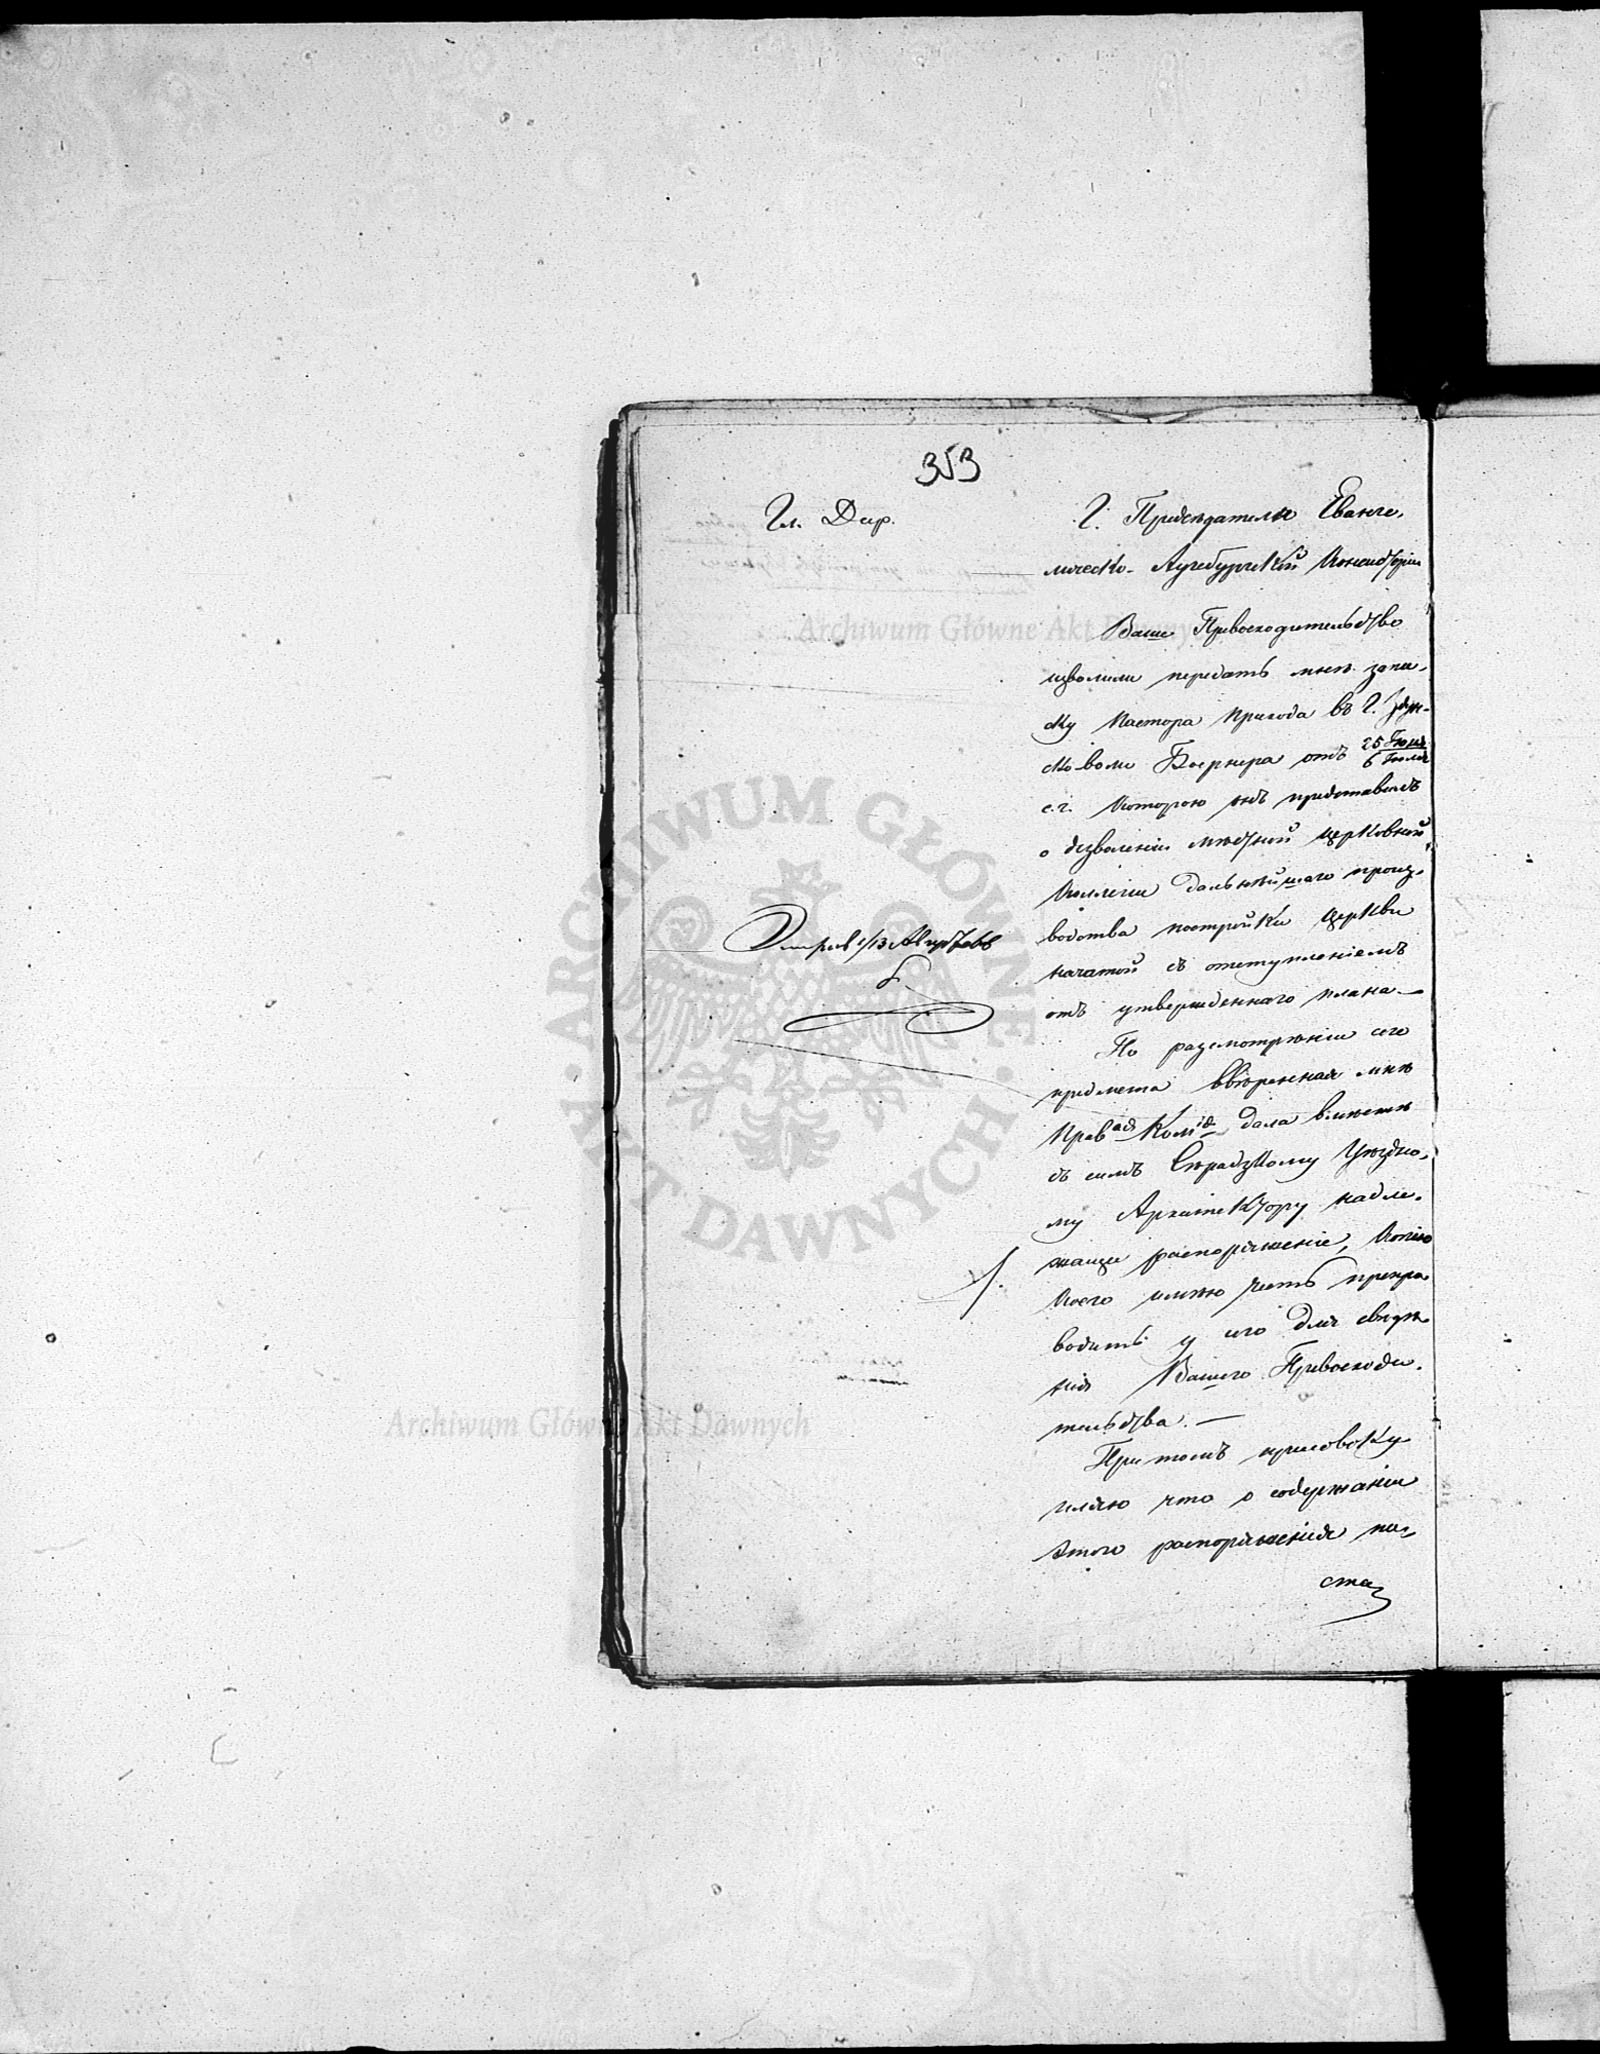 353
Гл. Дир.
Г. Председателю Еванге-
лическо-Аугсбургской Консисторіи
Ваше Превосходительство
изволили передать мнѣ запи-
ску Пастора прихода въ Г. Здун-
ско-воли Боернера отъ 25 Іюня
6 Іюля
с.г. которою онъ представилъ
о дозволеніи мѣстной церковной
Коллегіи дальнѣйшаго произ-
водства постройки церкви
начатой съ отступленіемъ
отъ утвержденнаго плана. —
По разсмотрѣніи сего
предмета ввѣренная мнѣ
Прав.ая Ком.ія дала вмѣстѣ
съ симъ Сѣрадзкому Уѣздно-
му Архитектору надле-
жащее распоряженіе, копію
коего имѣю честь препро
водить у сего для свѣдѣ
нія Вашего Превосходи-
тельства. —
При томъ присовоку
пляю что о содержаніи
этого распоряженія па-
ста
1/13 Августа
Archiwum Główne Akt Dawnych
ARCHIWUM GŁÓWNE AKT DAWNYCH
Archiwum Główne Akt Dawnych